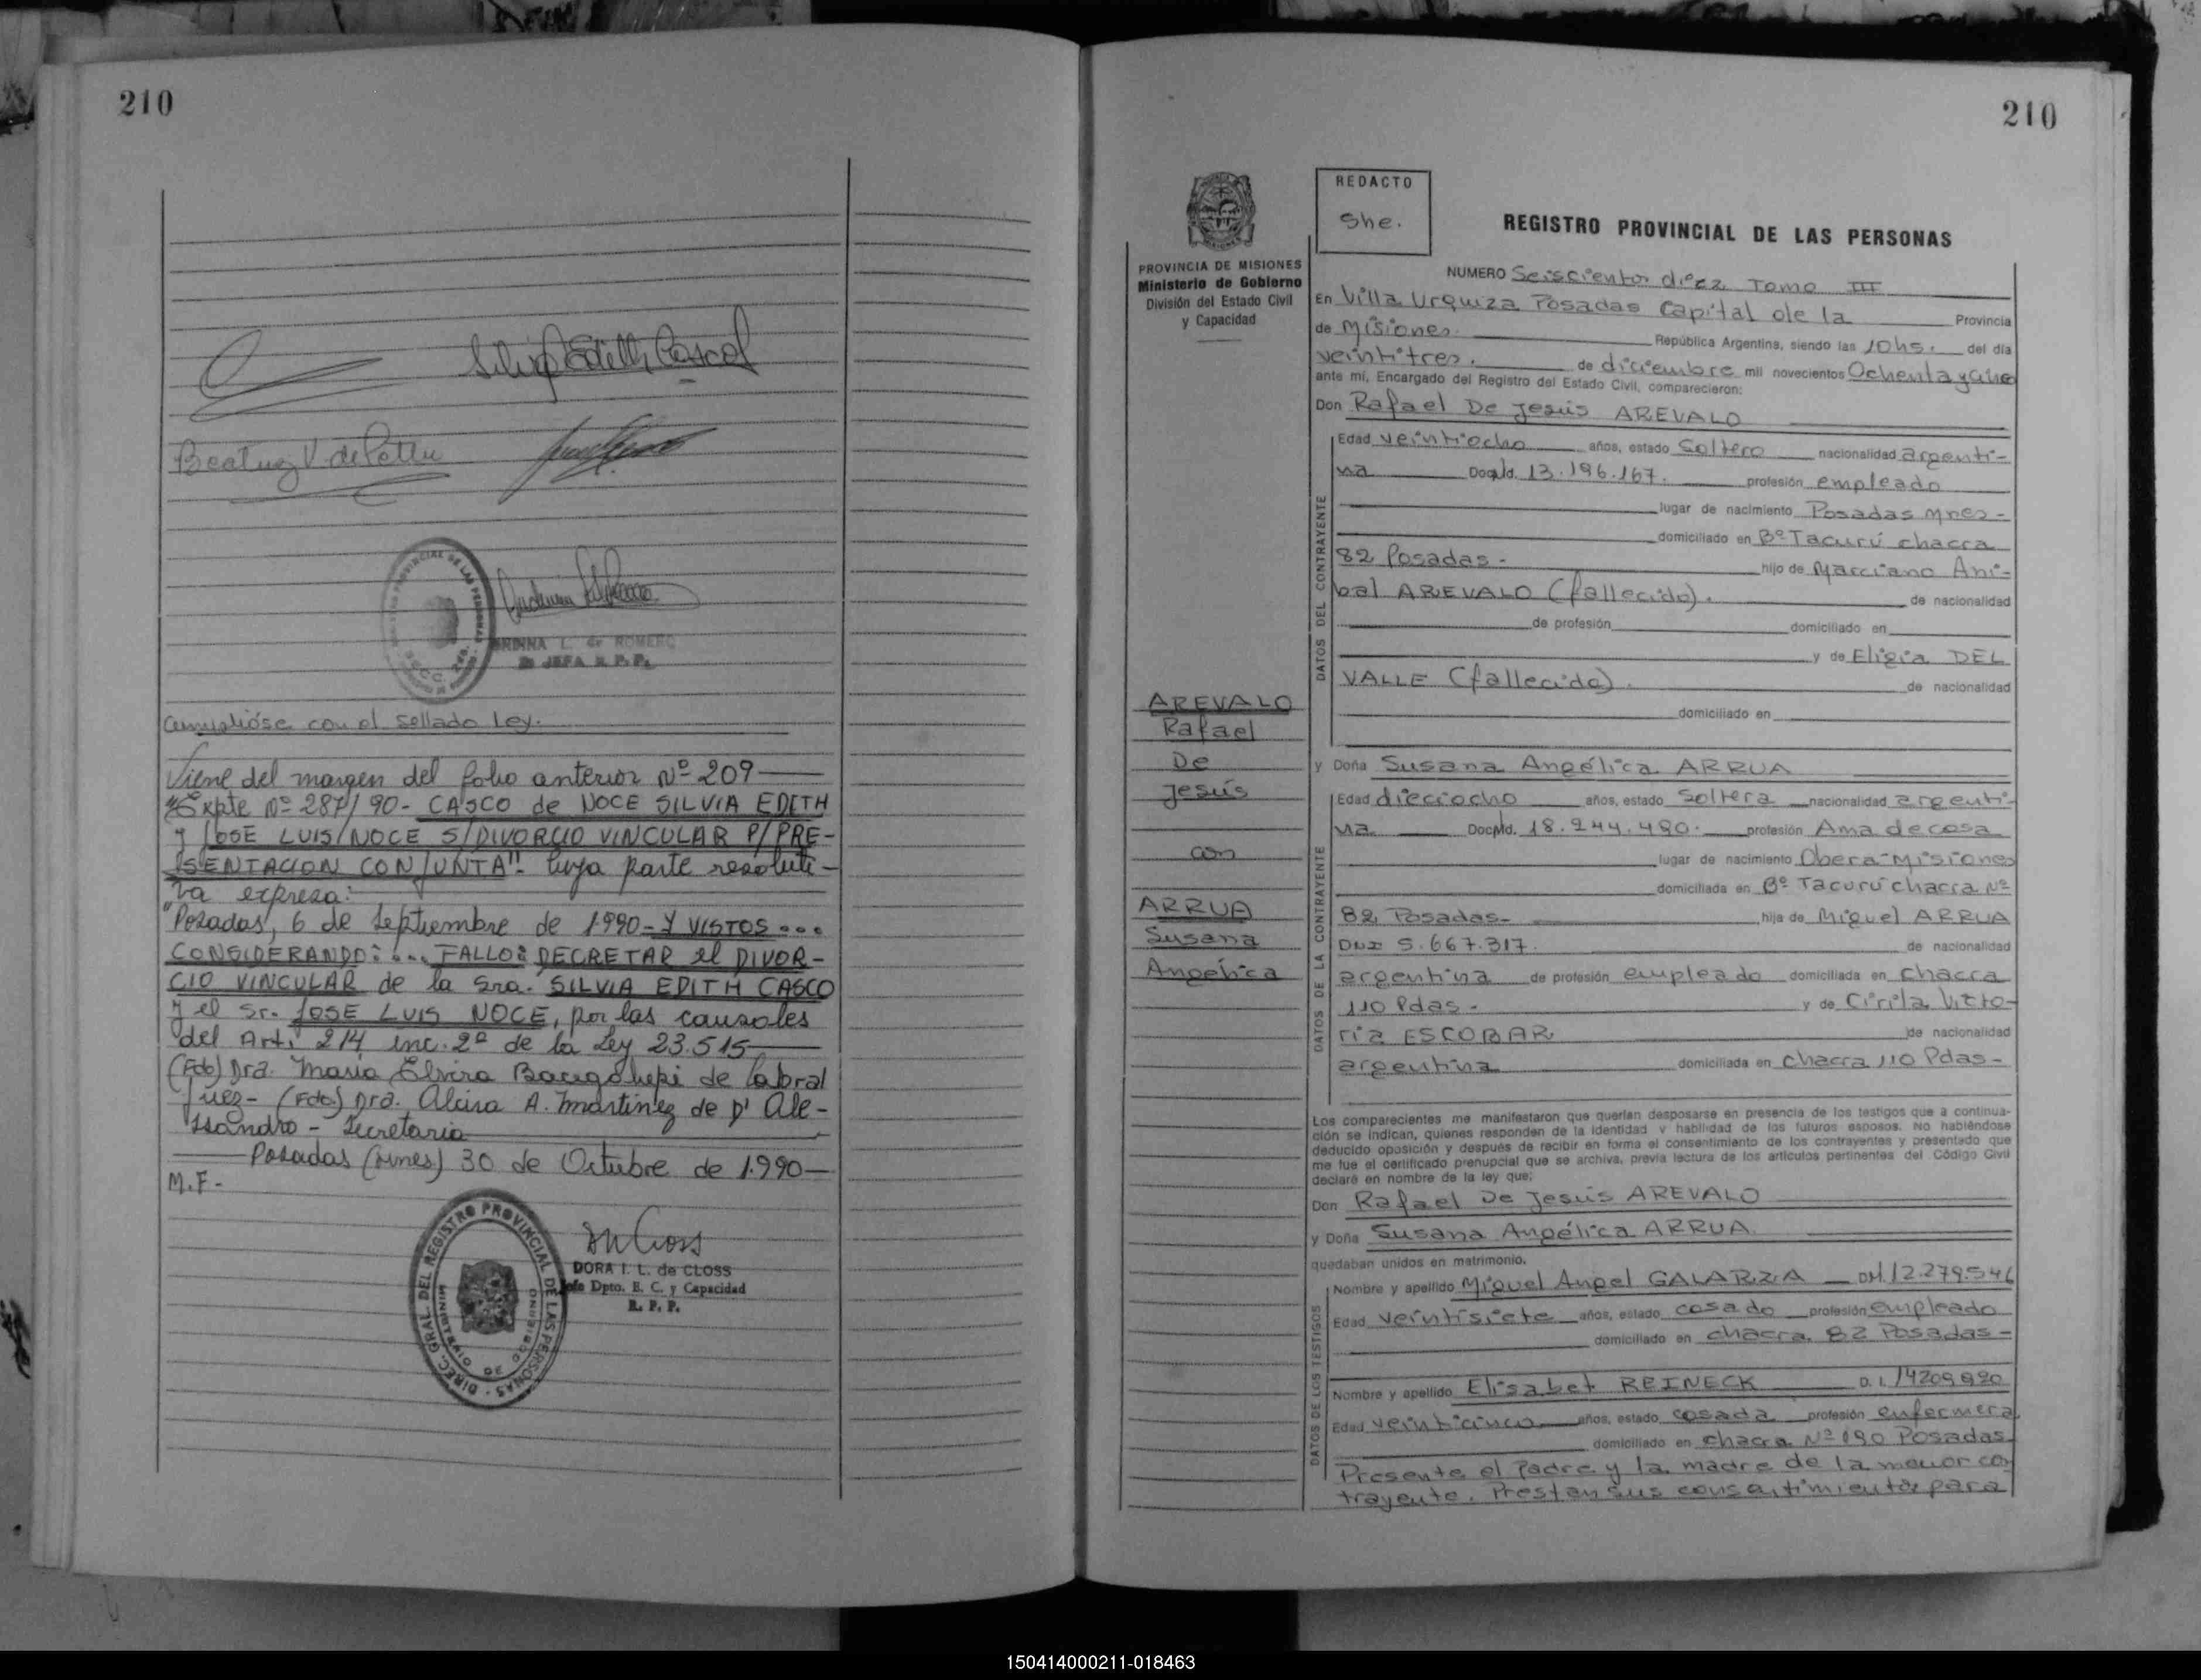 210
Silvia Edith Casco
Beatriz V. de
REGISTRO PROVINCIAL DE LAS PERSONAS
ANDINA L. de ROMERO
JEFA R. P. P.
Cumplióse con el sellado Ley.
Viene del margen del folio anterior Nº 209
"Expte Nº 287/90 - CASCO de NOCE SILVIA EDITH
y JOSE LUIS NOCE S/DIVORCIO VINCULAR P/PRE-
SENTACION CONJUNTA" - Cuya parte resoluti-
va expresa:
"Posadas, 6 de Septiembre de 1990 - Y VISTOS ...
CONSIDERANDO: ... FALLO: DECRETAR el DIVOR-
CIO VINCULAR de la Sra. SILVIA EDITH CASCO
y el Sr. JOSE LUIS NOCE, por las causales
del Art. 214 inc. 2º de la Ley 23.515
(Fdo) Dra. Maria Elvira de Cabral
Juez - (Fdo) Dra. Alcira A. Martinez de D' Ale-
ssandro - Secretaria
Posadas (Mnes) 30 de Octubre de 1.990
M.F-
DIREC. GRAL. DEL REGISTRO PROVINCIAL DE LAS PERSONAS
DORA I. L. de CLOSS
Jefe Dpto. E. C. y Capacidad
R. P. P.
210
PROVINCIA DE MISIONES
Ministerio de Gobierno
División del Estado Civil
y Capacidad
AREVALO
Rafael
De
Jesús
con
ARRUA
Susana
Angélica
REDACTO
She.
REGISTRO PROVINCIAL DE LAS PERSONAS
NUMERO Seiscientos diez Tomo III
En Villa Urquiza Posadas Capital de la Provincia
de Misiones. República Argentina, siendo las 10hs. del día
veintitres. de diciembre mil novecientos Ochenta y
ante mí, Encargado del Registro del Estado Civil, comparecieron:
Don Rafael De Jesús AREVALO
DATOS DEL CONTRAYENTE
Edad veintiocho años, estado Soltero nacionalidad argenti-
na Docnld. 13.196.167. profesión empleado
lugar de nacimiento Posadas Mnes-
domiciliado en Bº Tacurú chacra
82 Posadas - hijo de Marciano Aní-
bal AREVALO (fallecido). de nacionalidad
de profesión domiciliado en
y de Eligia DEL
VALLE (fallecida). de nacionalidad
domiciliado en
y Doña Susana Angélica ARRUA
DATOS DE LA CONTRAYENTE
Edad dieciocho años, estado Soltera nacionalidad argenti-
na DocNld. 18.244.480. profesión Ama de casa
lugar de nacimiento Obera-Misiones
domiciliada en Bº Tacurú chacra Nº
82 Posadas- hija de Miguel ARRUA
DNI 5.667.317. de nacionalidad
argentina de profesión empleado domiciliada en chacra
110 Pdas - y de Cirila Victo-
ria ESCOBAR de nacionalidad
argentina domiciliada en chacra 110 Pdas-
Los comparecientes me manifestaron que querían desposarse en presencia de los testigos que a continua-
ción se indican, quienes responden de la identidad y habilidad de los futuros esposos. No habiéndose
deducido oposición y después de recibir en forma el consentimiento de los contrayentes y presentado que
me fue el certificado prenupcial que se archiva, previa lectura de los artículos pertinentes del Código Civil
declaré en nombre de la ley que;
Don Rafael De Jesús AREVALO
y Doña Susana Angélica ARRUA.
quedaban unidos en matrimonio.
DATOS DE LOS TESTIGOS
Nombre y apellido Miguel Angel GALARZA DM. 12.279.546
Edad veintisiete años, estado casado profesión empleado
domiciliado en chacra 82 Posadas-
Nombre y apellido Elisabet REINECK D. I. 14209920
Edad veinticinco años, estado casada profesión enfermera
domiciliado en chacra Nº 190 Posadas
Presente el Padre y la madre de la menor con
trayente. Prestan sus consentimientos para
150414000211-018463